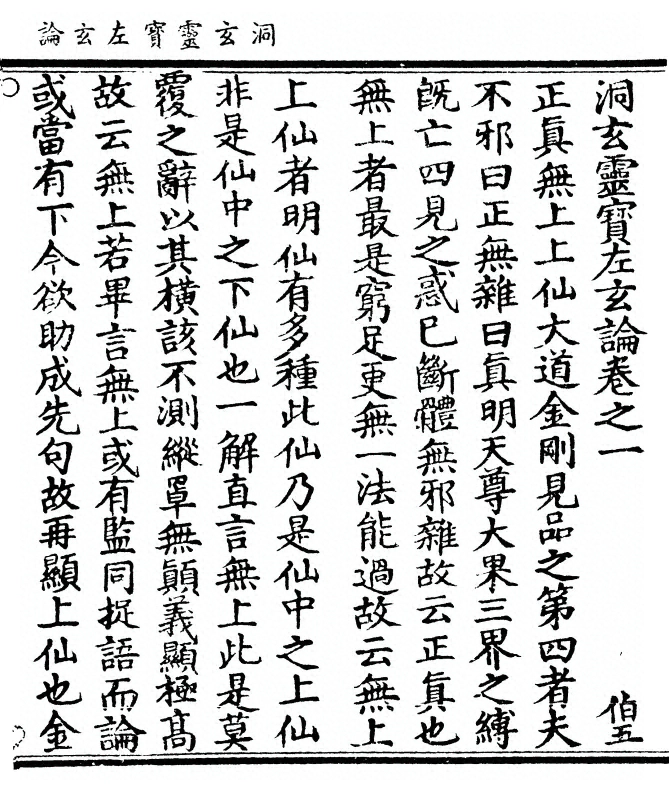 洞玄靈寶左玄論
洞玄靈寶左玄論卷之一 伯五
正眞無上上仙大道金剛見品之第四者夫
不邪曰正無雜曰眞明天尊大果三界之縛
旣亡四見之惑已斷體無邪雜故云正眞也
無上者最是窮足更無一法能過故云無上
上仙者明仙有多種此仙乃是仙中之上仙
非是仙中之下仙也一解直言無上此是莫
覆之辭以其橫該不測縱罩無顚義顯極高
故云無上若畢言無上或有監同捉語而論
或當有下今欲助成先句故再顯上仙也金